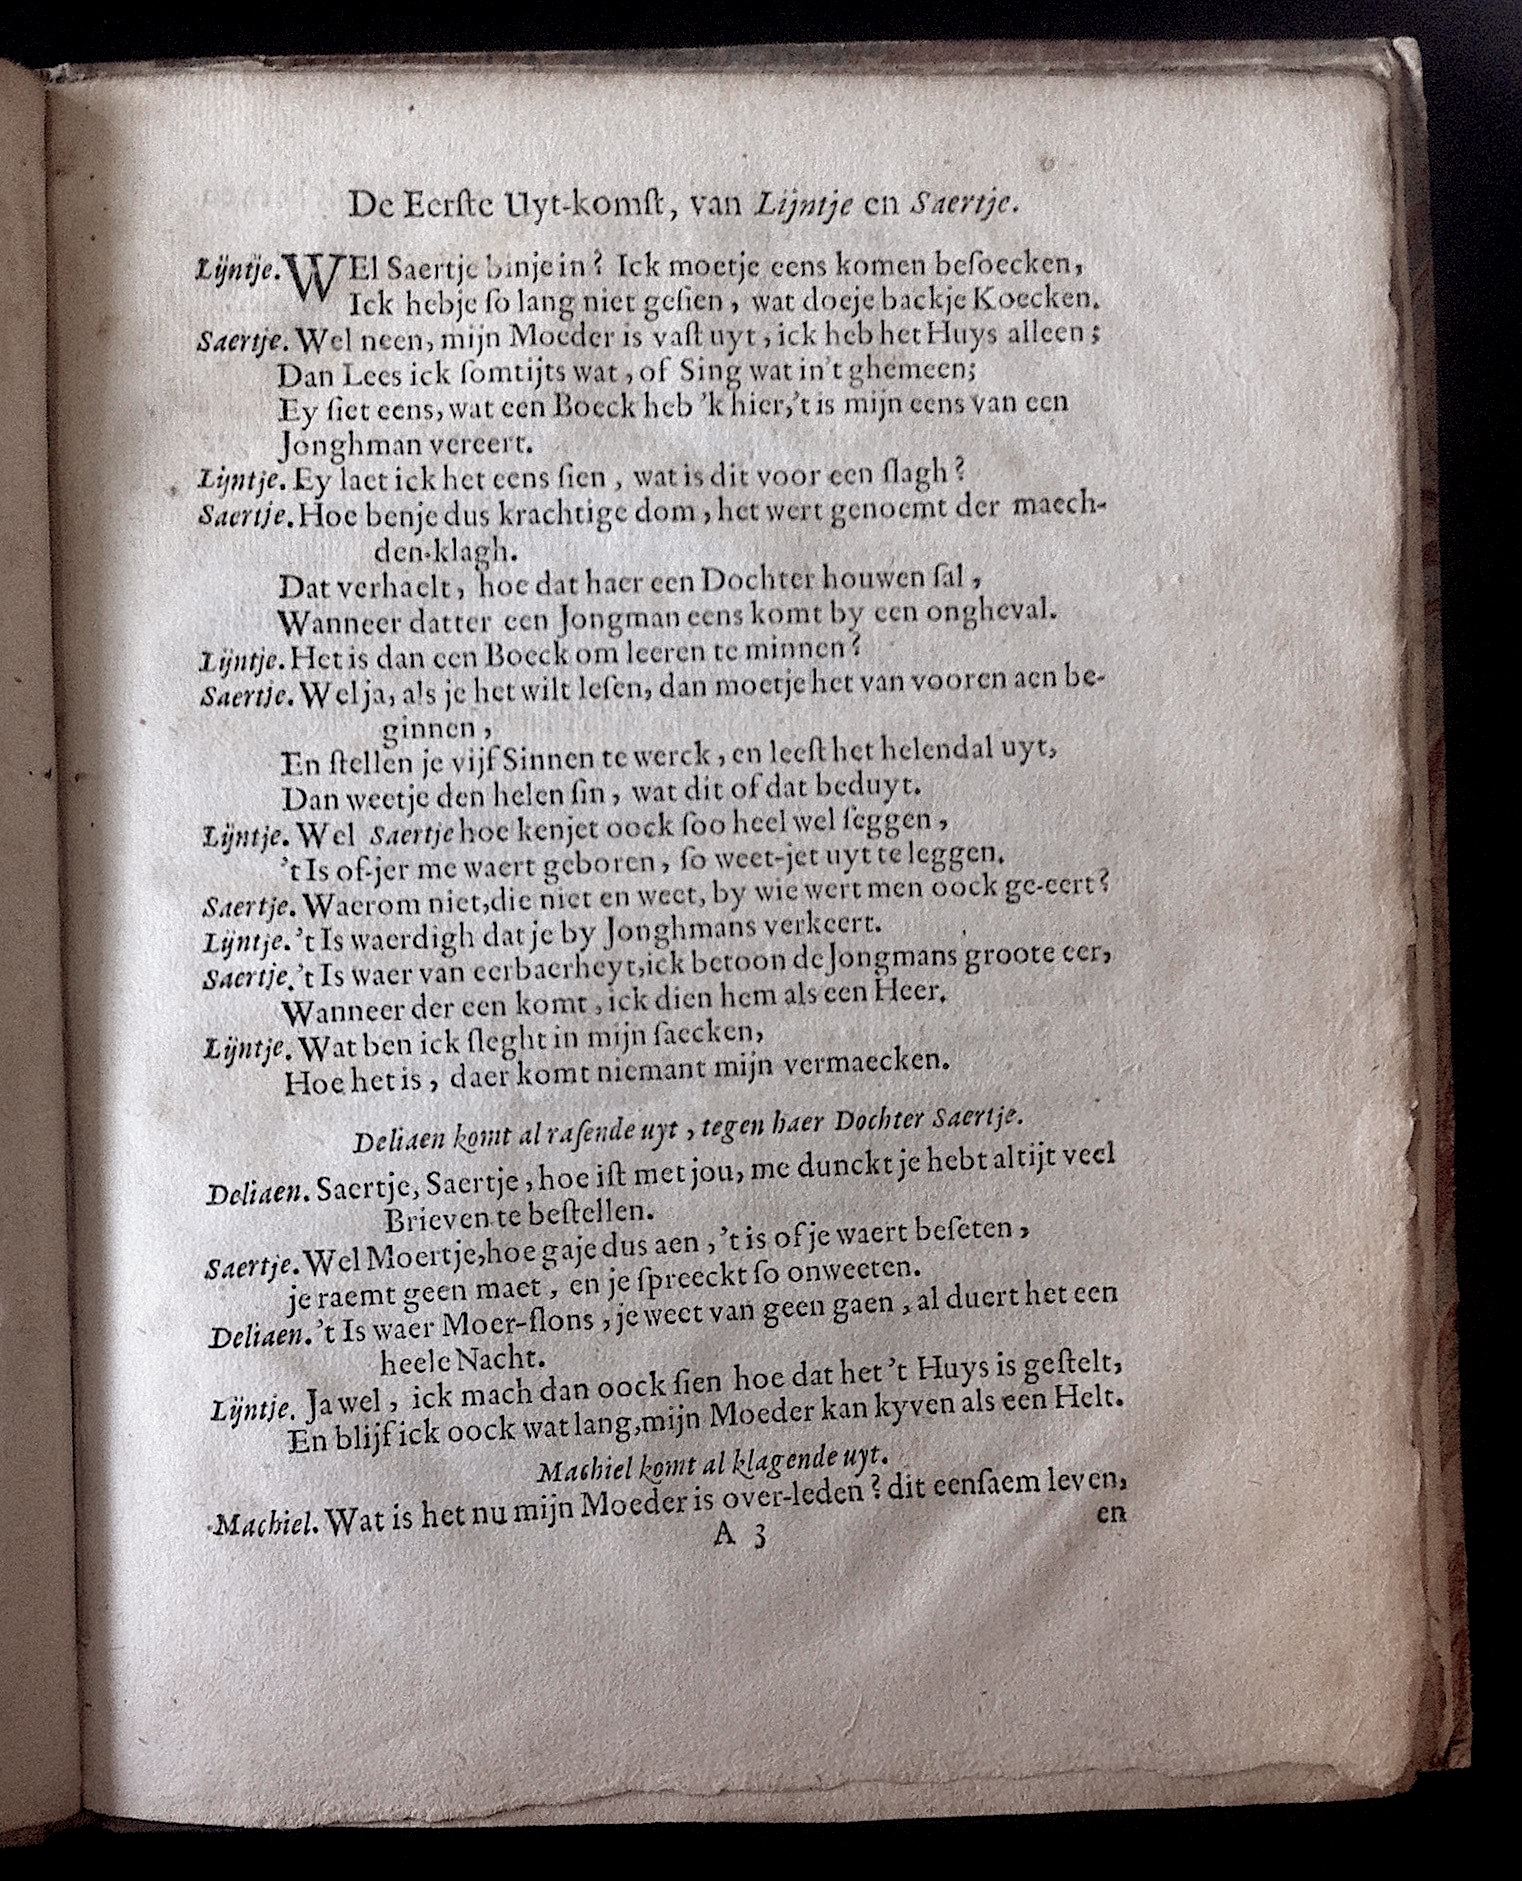 De Eerſte Uyt-komſt, van Lijntje en Saertje.
Lijntje. WEl Saertje binje in? Ick moetje eens komen beſoecken,
Ick hebje ſo lang niet geſien, wat doeje backje Koecken.
Saertje. Wel neen, mijn Moeder is vaſt uyt, ick heb het Huys alleen;
Dan Lees ick ſomtijts wat, of Sing wat in't ghemeen;
Ey ſiet eens, wat een Boeck heb 'k hier, 't is mijn eens van een
Jonghman vereert.
Lijntje. Ey laet ick het eens ſien, wat is dit voor een ſlagh?
Saertje. Hoe benje dus krachtige dom, het wert genoemt der maech-
den-klagh.
Dat verhaelt, hoe dat haer een Dochter houwen ſal,
Wanneer datter een Jongman eens komt by een ongheval.
Lijntje. Het is dan een Boeck om leeren te minnen?
Saertje. Wel ja, als je het wilt leſen, dan moetje het van vooren aen be-
ginnen,
En ſtellen je vijf Sinnen te werck, en leeſt het helendal uyt,
Dan weetje den helen ſin, wat dit of dat beduyt.
Lijntje. Wel Saertje hoe kenjet oock ſoo heel wel ſeggen,
't Is of-jer me waert geboren, ſo weet-jet uyt te leggen.
Saertje. Waerom niet, die niet en weet, by wie wert men oock ge-eert?
Lijntje. 't Is waerdigh dat je by Jonghmans verkeert.
Saertje. 't Is waer van eerbaerheyt, ick betoon de Jongmans groote eer,
Wanneer der een komt, ick dien hem als een Heer.
Lijntje. Wat ben ick ſleght in mijn ſaecken,
Hoe het is, daer komt niemant mijn vermaecken.
Deliaen komt al raſende uyt, tegen haer Dochter Saertje.
Deliaen. Saertje, Saertje, hoe iſt met jou, me dunckt je hebt altijt veel
Brieven te beſtellen.
Saertje. Wel Moertje, hoe gaje dus aen, 't is of je waert beſeten,
je raemt geen maet, en je ſpreeckt ſo onweeten.
Deliaen. 't Is waer Moer-ſlons, je weet van geen gaen, al duert het een
heele Nacht.
Lijntje. Ja wel, ick mach dan oock ſien hoe dat het 't Huys is geſtelt,
En blijf ick oock wat lang, mijn Moeder kan kyven als een Helt.
Machiel komt al klagende uyt.
Machiel. Wat is het nu mijn Moeder is over-leden? dit eenſaem leven,
A 3
en